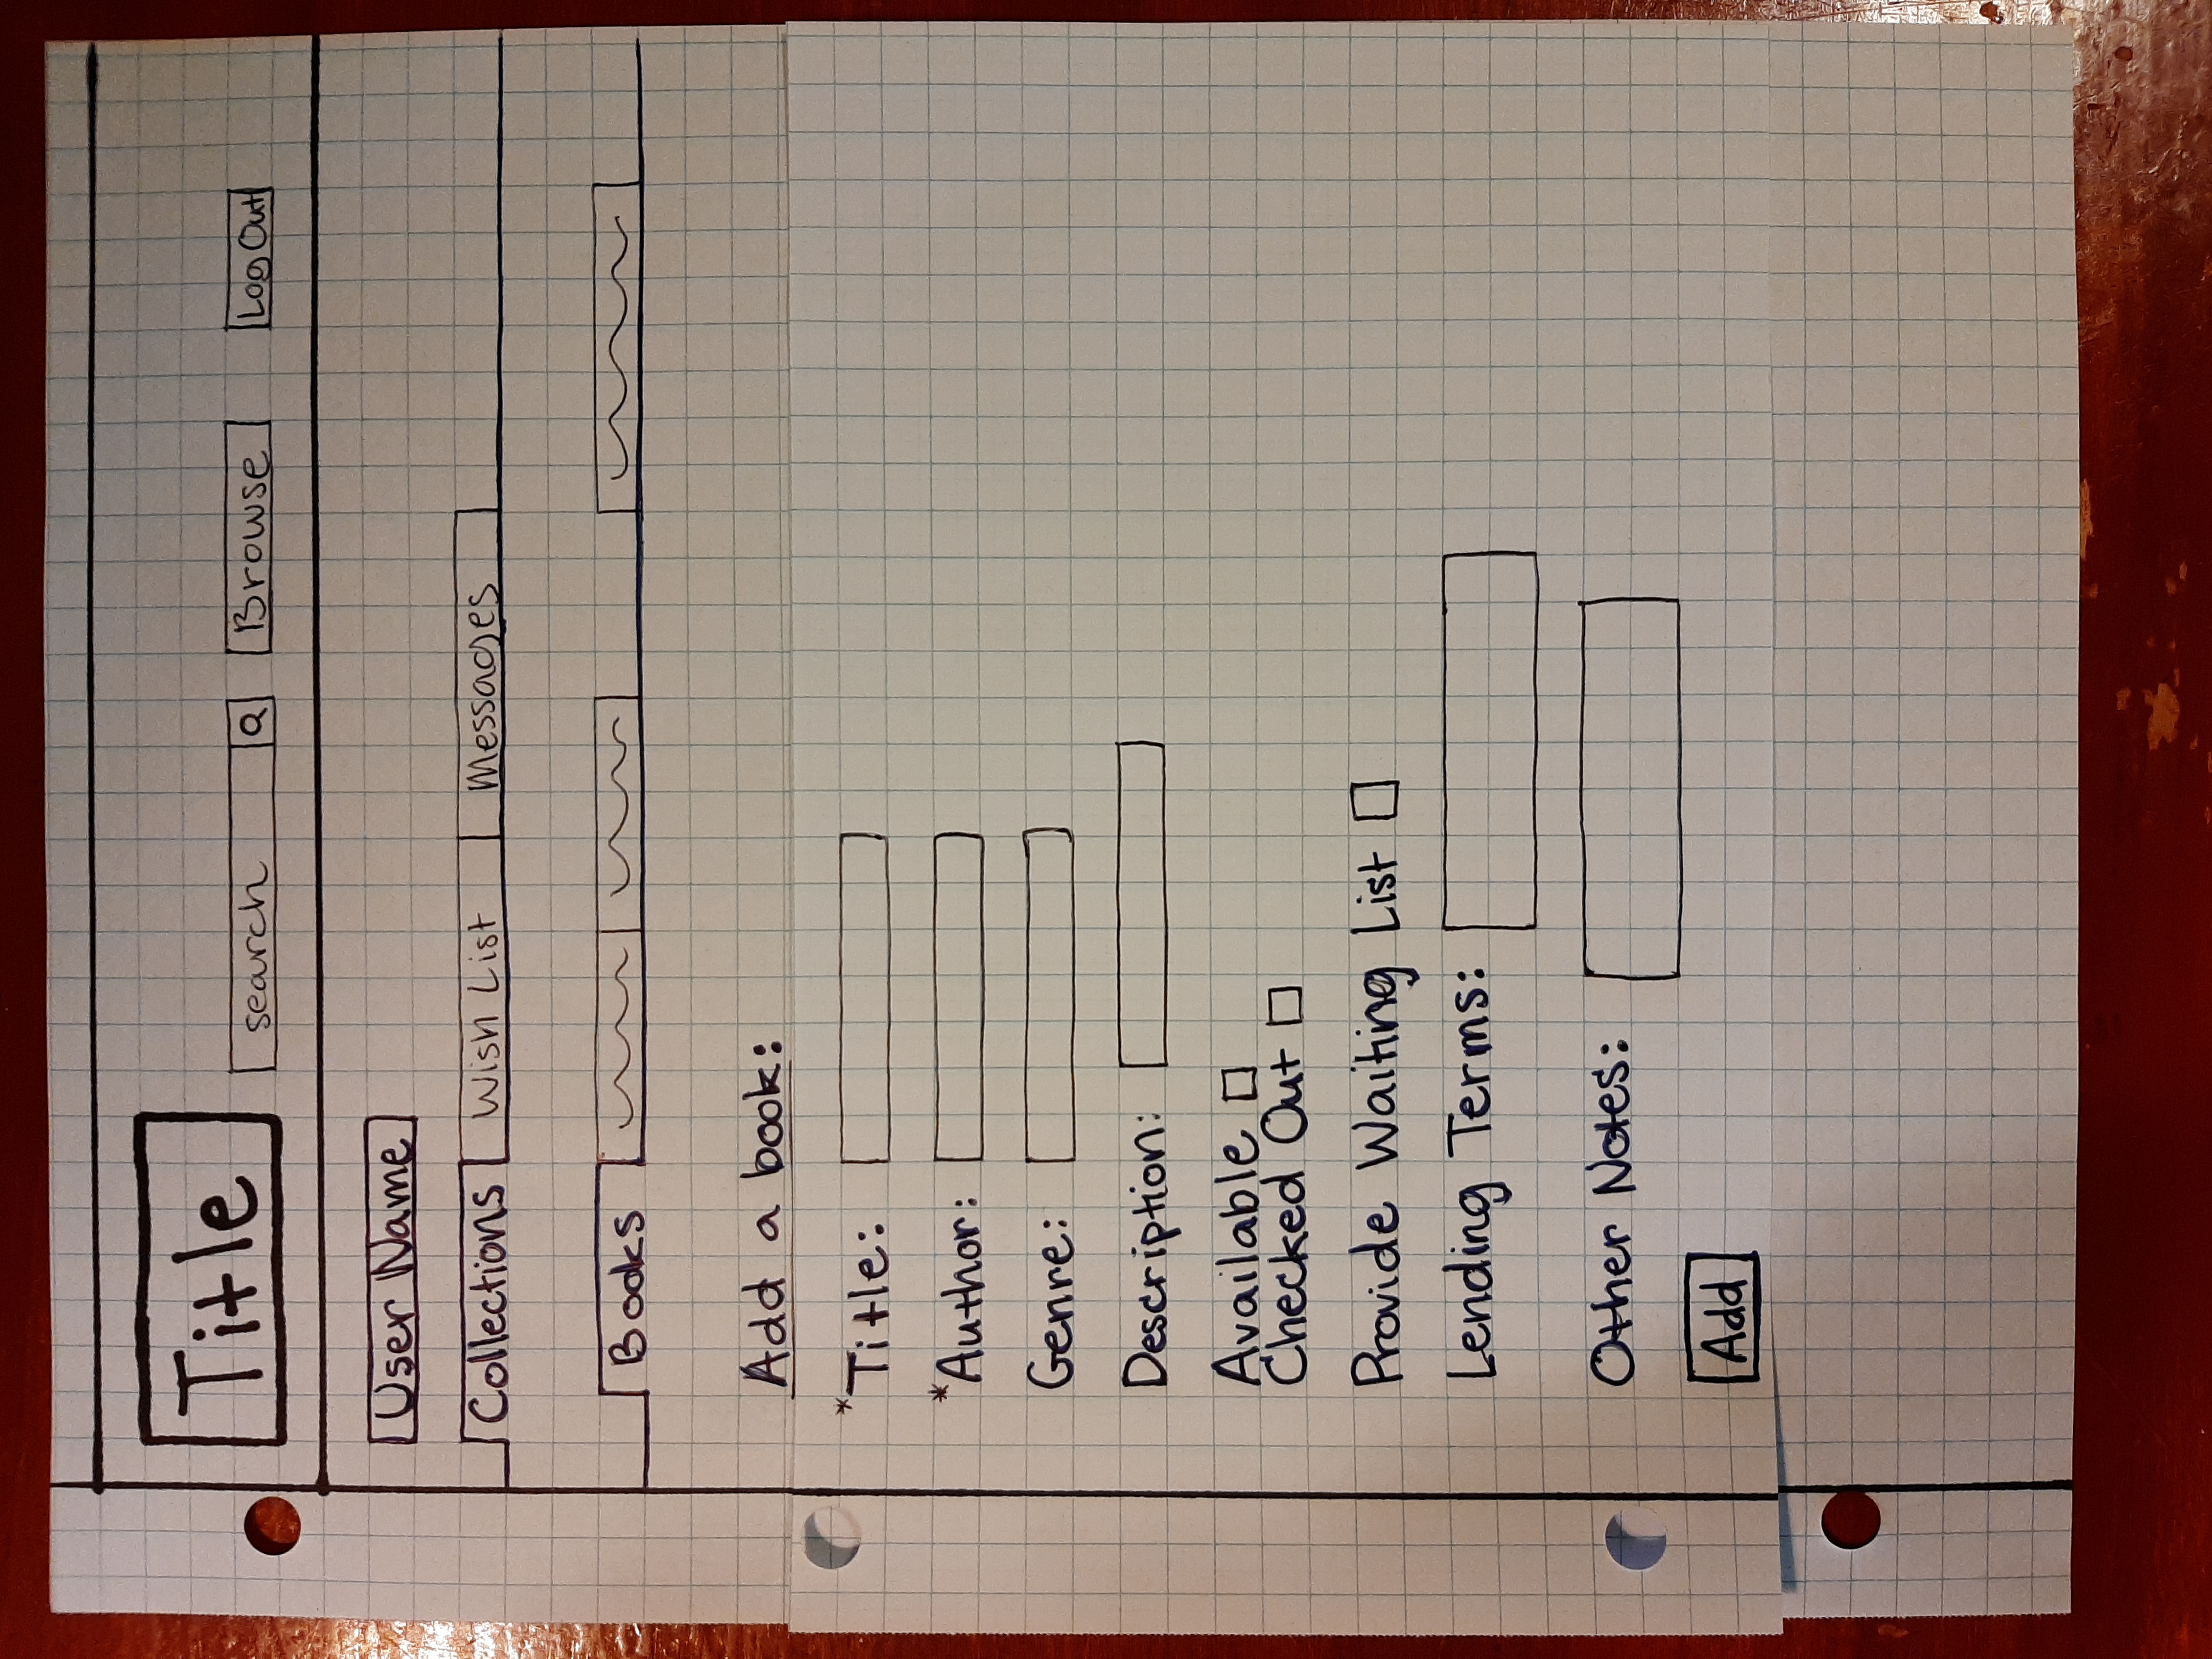 Title
search Browse Log Out
User Name
Collections Wish List Messages
Books
Add a book:
*Title:
*Author:
Genre:
Description:
Available
Checked Out
Provide Waiting List
Lending Terms:
Other Notes:
Add